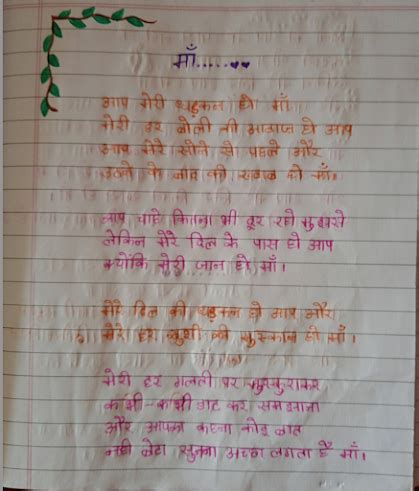 माँ......
आप मेरी धड़कन हो माँ
मेरी हर बोली की आवाज हो आप
आप मेरे सोने से पहले और
उठने के बाद की हो माँ।
आप चाहे कितना भी दूर रहो मुझसे
लेकिन मेरे दिल के पास हो आप
क्योंकि मेरी जान हो माँ।
मेरे दिल की धड़कन हो आप और
मेरे हर खुशी की मुस्कान हो माँ।
मेरी हर गलती पर मुस्कुराकर
कभी-कभी डाट कर समझाना
और आपका कहना कोई बात
नही बेटा सुनना अच्छा लगता है माँ।